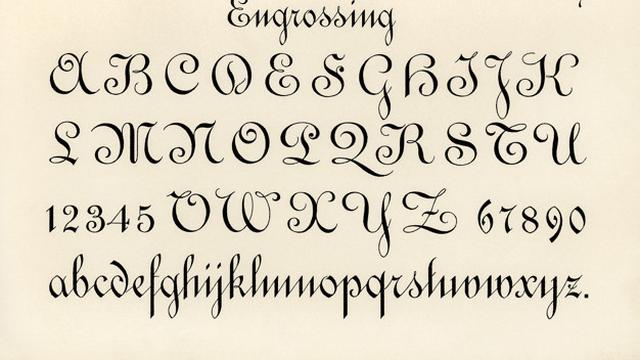 Engrossing
A B C D E F G H I J K
L M N O P Q R S T U
1 2 3 4 5 V W X Y Z 6 7 8 9 0
a b c d e f g h i j k l m n o p q r s t u v w x y z .